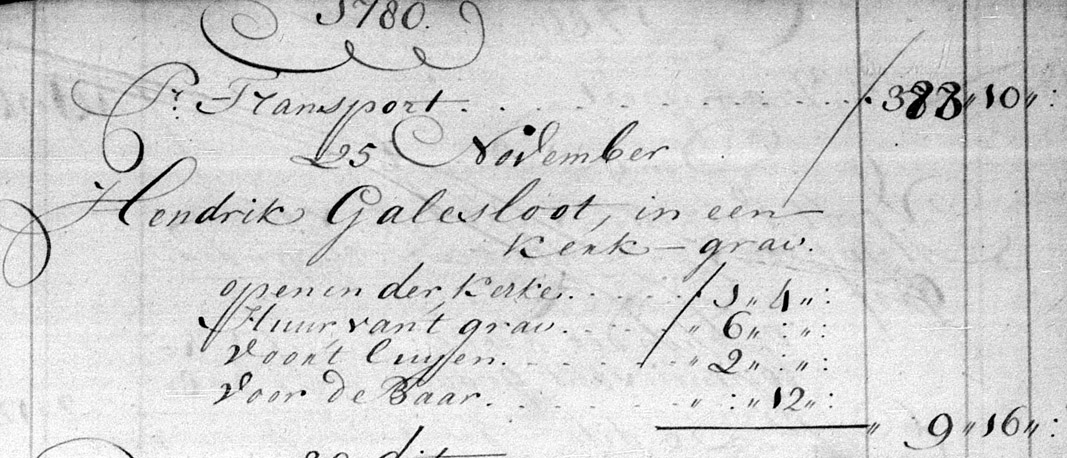 1780.
Pr. Transport . . . . . . . . . . . . 383 „ 10 „ :
25 November
Hendrik Galesloot, in een
kerk – grav.
open in der kerke . . . . . / 1 „ 4 „ :
Huur vant grav. . . . . „ 6 „ : „ :
voor't luyen. . . . . . „ 2 „ : „ :
voor de Baar. . . . . . „ : „ 12 „ :
„ 9 „ 16 „ :
dit